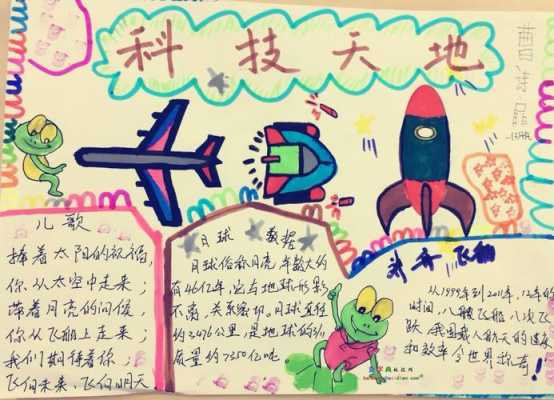 科技天地
儿歌
捧着太阳的祝福,
你从太空中走来;
带着月亮的问候,
你从飞船上走来;
我们期待着你;
飞向未来、飞向明天
月球 数据
月球俗称月亮,年龄大约
有46亿年,它与地球形影
不离,关系密切,月球直径
约3476公里,是地球的3/11
质量约7350亿吨
神舟飞船
从1999年到2011年,12年的
时间,八艘飞船,八次飞
跃,我国载人航天的速度
和效率令世界称奇!